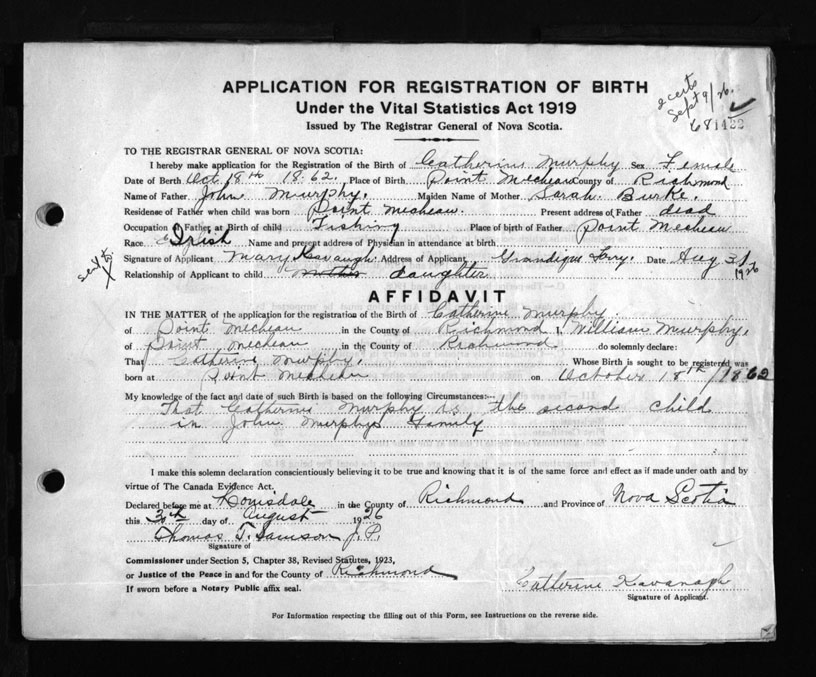 APPLICATION FOR REGISTRATION OF BIRTH
Under the Vital Statistics Act 1919
Issued by The Registrar General of Nova Scotia.
2 certs
Sept 9/26.
681422
TO THE REGISTRAR GENERAL OF NOVA SCOTIA:
I hereby make application for the Registration of the Birth of Catherine Murphy Sex Female
Date of Birth Oct 18th 1862. Place of Birth Point Micheau County of Richmond
Name of Father John Murphy. Maiden Name of Mother Sarah Burke.
Residense of Father when child was born Point Micheau. Present address of Father dead
Occupation of Father at Birth of child Fishing Place of birth of Father Point Micheau
Race Irish Name and present address of Physician in attendance at birth
Signature of Applicant Mary Kavaugh Address of Applicant Grandique Fery. Date Aug 31 1926
Relationship of Applicant to child mother daughter
sent to
AFFIDAVIT
IN THE MATTER of the application for the registration of the Birth of Catherine Murphy.
of Point Micheau in the County of Richmond I, William Murphy.
of Point Micheau in the County of Richmond do solemnly declare:
That Catherine Murphy. Whose Birth is sought to be registered was
born at Point Micheau on October 18th / 1862
My knowledge of the fact and date of such Birth is based on the following Circumstances:—
That Catherine Murphy is the second child
in John Murphys family
I make this solemn declaration conscientiously believing it to be true and knowing that it is of the same force and effect as if made under oath and by
virtue of The Canada Evidence Act.
Declared before me at Louisdale in the County of Richmond and Province of Nova Scotia
this 30th day of August 1926
Thomas T. Samson J. P.
Signature of
Commissioner under Section 5, Chapter 38, Revised Statutes, 1923,
or Justice of the Peace in and for the County of Richmond
If sworn before a Notary Public affix seal.
Catherine Kavanagh
Signature of Applicant.
For Information respecting the filling out of this Form, see Instructions on the reverse side.